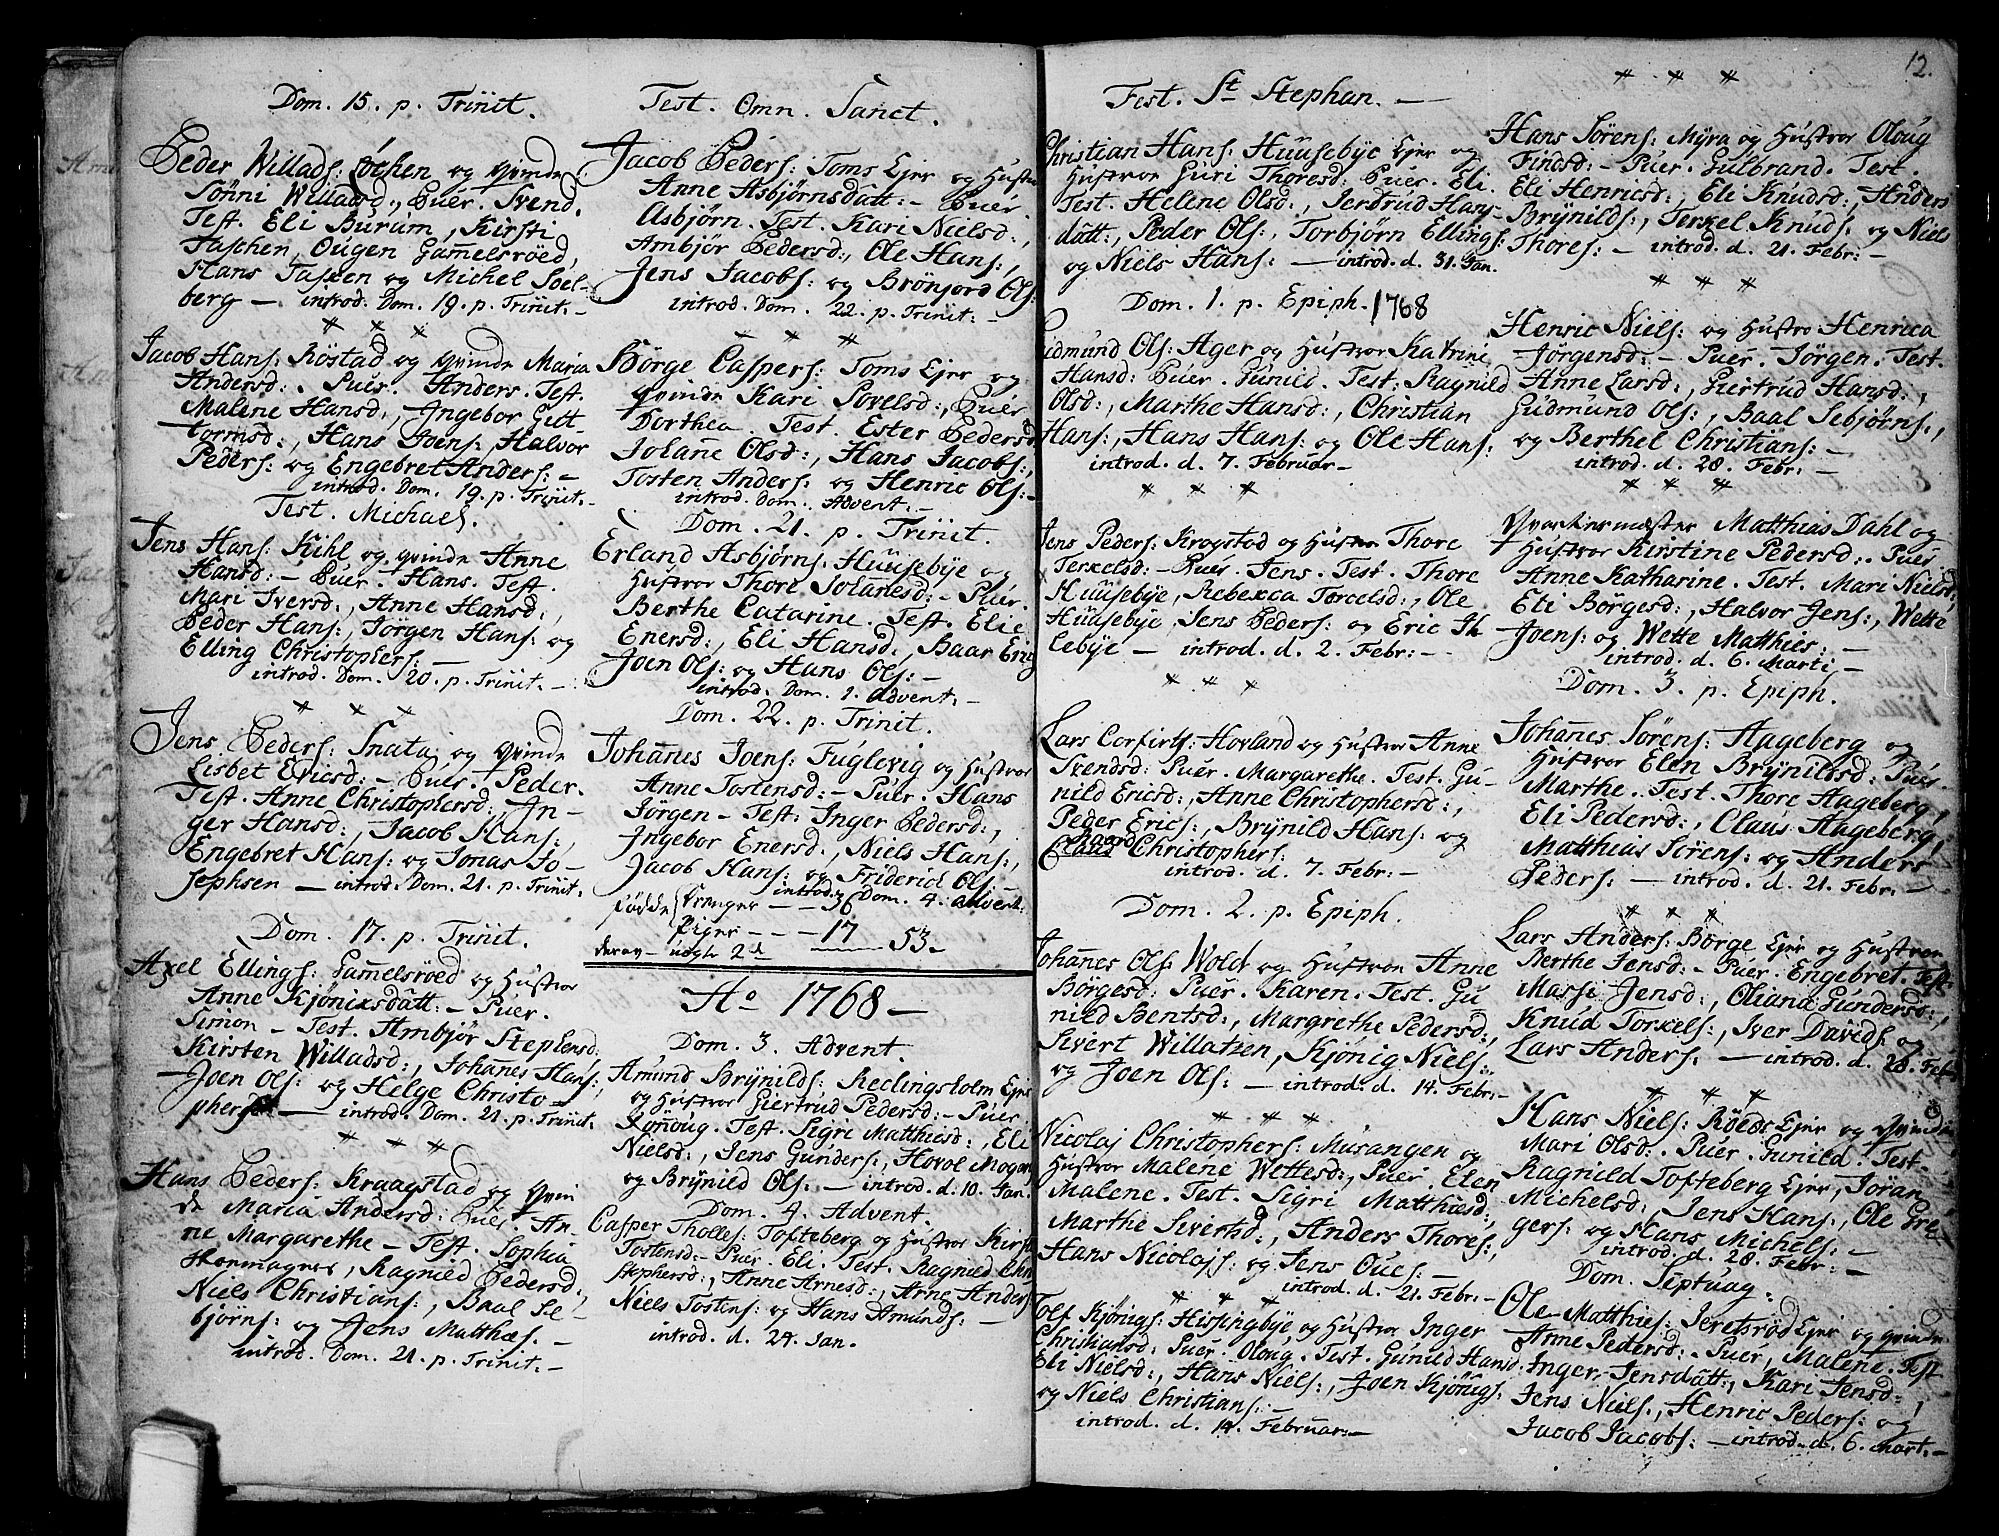 Dom. 15. p. Triñit.
Peder Willads: Löchen og qvinde:
Sønni Willadsd., Puer. Svend.
Test. Eli Burum, Kirsti
Taschen, Ougen Gamelsröed,
Hans Tasken og Michel Soel-
berg — introd. Dom. 19. p. Triñit. –
Jacob Hans: Röstad og qvinde Maria
Andersd: Puer. Anders. Test.
Malene Hansd:, Ingebor Gut-
tormsd:, Hans Joens: Halvor
Peders: og Engebret Anders: –
introd. Dom. 19. p. Triñit. –
Fest. Michael.
Jens Hans: Kihl og qvinde Anne
Hansd: – Puer – Hans. Test.
Mari Iversd:, Anne Hansd:,
Peder Hans:, Jörgen Hans: og
Elling Christophers: –
introd. Dom. 20. p. Triñit. –
Jens Peders: Snata og qvinde
Lisbet Ericsd: – Puer. Peder.
Test. Anne Christophersd:, In-
ger Hansd:, Jacob Hans:,
Engebret Hans: og Jonas Jo-
sephsen — introd. Dom. 21. p. Triñit.
Dom. 17. p. Triñit.
Axel Ellings: Gamelsröed og Hustror
Anne Kjönixsdätt: – Puer.
Simon – Test. Ambjör Stephensd:
Kirsten Willadsd:, Johanes Hans:,
Joen Ols: og Helge Christo-
phers: — introd. Dom. 21. p. Triñit.
Hans Peders: Kraagstad og qvin
de Maria Andersd: Puer. An-
ne Margarethe – Test. Sophia
Ragnild Pedersd:,
Niels Christians:, Baal Se-
björns: og Jens Matthæs. –
introd. Dom. 21. p. Triñit. –
Fest. Omn. Sanct.
Jacob Peders: Toms Ejer og Hustror
Anne Asbjørnsdatt: – Puer.
Asbjørn. Test. Kari Nielsd:,
Ambjør Pedersd:, Ole Hans:,
Jens Jacobs: og Brönjord Ols:
introd. Dom. 22. p. Triñit: –
Börge Caspers: Toms Ejer og
qvinde Kari Povelsd:, Puer
Dorthea. Test. Ester Pedersd
Johañe Olsd:, Hans Jacobs:,
Tosten Anders: og Henric Ols: –
introd. Dom. Advent. –
Dom. 21. p. Triñit.
Erland Asbjörns: Huusebye og
Hustror Thore Johanesd: – Puer.
Berthe Catarine. Test. Elie
Enersd:, Eli Hansd:, Baar Eing
Joen Ols: og Hans Ols: –
introd. Dom. 1. Advent. –
Dom. 22. p. Trinit.
Johañes Joens: Fuglevig og Hustror
Anne Tostensd: – Puer. Hans
Jörgen – Test: Inger Pedersd:,
Ingebor Enersd:, Niels Hans:,
Jacob Hans: og Friderich Ols: –
introd. Dom. 4. Advent:
Födde Drenger – – 36
Piger – – – 17 —— 53 –
derav uægte 2de
Ao 1768 –
Dom. 3. Advent.
Amund Brynilds: Reclingsholm Ejer
og Hustror Giertrud Pedersd: – Puer
Test. Sigri Matthiesd:, Eli
Nielsd:, Jens Gunders:, Hovol Mogan
og Brynild Ols: – introd. d. 10. Jan.
Dom. 4. Advent.
Casper Tholles: Tofteberg og Hustror Kirst
Tostensd: – Puer. Eli. Test. Ragnild Chri
stophersd:, Anne Arnesd:, Arne Anders
Niels Tostens: og Hans Amunds: –
introd. d. 24. Jan.
Fest. St Stephan. —
Christian Hans: Huusebye Ejer og
Hustror Guri Thoresd: Puer. Eli.
Test. Helene Olsd:, Jertrud Hans-
datt:, Peder Ols:, Torbjörn Ellings:
og Niels Hans: – introd. d. 31. Jan.
Dom. 1. p. Epiph. 1768
Gudmund Ols: Ager og Hustror Katrine
Hansd: Puer. Gunild. Test: Ragnild
Olsd:, Marthe Hansd:, Christian
Hans:, Hans Hans: og Ole Hans:
introd. d. 7. Februar –
Jens Peders: Krogstad og Hustror Thore
Terkelsd: – Puer. Jens. Test. Thore
Huusebye, Rebekca Torcelsd:, Ole
Huusebye, Jens Peders: og Eric Th
lebye – introd. d. 2. Febr: –
Lars Corfirts: Hovland og Hustror Anne
Svendsd: Puer. Margarethe. Test. Gu-
nild Ericsd:, Anne Christophersd:,
Peder Erics:, Brynild Hans: og
Baard Christophers:
introd. d. 7. Febr: –
Dom. 2. p. Epiph.
Johañes Ols: Wold og Hustror Anne
Borgesd: Puer. Karen. Test. Gu
nild Bentsd:, Margrethe Pedersd:,
Sivert Willatzen, Kjönig Niels:,
og Joen Ols: – introd. d. 14. Febr: –
Nicolaj Christophers: Musangen og
Hustror Malene Wettesd:, Puer. Elen
Malene. Test. Sigri Matthiesd:,
Marthe Sivertsd:, Anders Thores:,
Hans Nicolajs: og Jens Oues: –
introd. d. 21. Febr: –
Tolf Kjönigs: Hissingbye og Hustror Inger
Christiansd: Puer. Oloug. Test. Gunild Hansd:
Eli Nielsd:, Hans Niels:, Joen Kjönigs:
og Niels Christians:
introd. d. 14. Februar: –
12.
Hans Sörens: Myra og Hustror Oloug
Findsd: – Puer. Gulbrand. Test.
Eli Henricsd:, Eli Knudsd:, Anders
Brynilds:, Terkel Knuds: og Niels
Thores: – introd. d. 21. Febr: –
Henric Niels: og Hustro Henrica
Jörgensd: – Puer. Jörgen. Test.
Anne Larsd:, Giertrud Hansd:,
Gudmund Ols:, Baal Sebjörns:,
og Berthel Christians: –
introd. d. 28. Febr: –
Qvartermæster Matthias Dahl og
Hustror Kirstine Pedersd: Puer.
Anne Katharine. Test. Mari Nielsd:,
Eli Börgesd:, Halvor Jens:, Wette
Joens: og Wette Matthies: –
introd. d. 6. Marti –
Dom. 3. p. Epiph.
Johañes Sörens: Aageberg og
Hustror Elen Brynildsd: Puer.
Marthe. Test. Thore Aageberg,
Eli Pedersd:, Claus Aageberg,
Matthias Sörens: og Anders
Peders: – introd. d. 21. Febr: –
Lars Anders: Börge Ejer og Hustror
Berthe Jensd: – Puer. Engebret. Test:
Massi Jensd:, Oliana Gundersd:,
Knud Torkels:, Iver Davids: og
Lars Anders: — introd. d. 28. Febr
Hans Niels: Röeds Ejer og qvinde
Mari Olsd: Puer. Gunild. Test.
Ragnild Tofteberg Ejer, Joran
Michelsd:, Jens Hans:, Ole Gre
gers: og Hans Michels: –
introd. d. 28. Febr: –
Dom. Septuag:
Ole Matthies: Jeretsröd Ejer og qvinde
Anne Pedersd: – Puer, Malene. Test
Inger Jensdätt:, Kari Jensd:,
Jens Niels., Henric Peders: og
Jacob Jacobs: – introd. d. 6. Mart. –